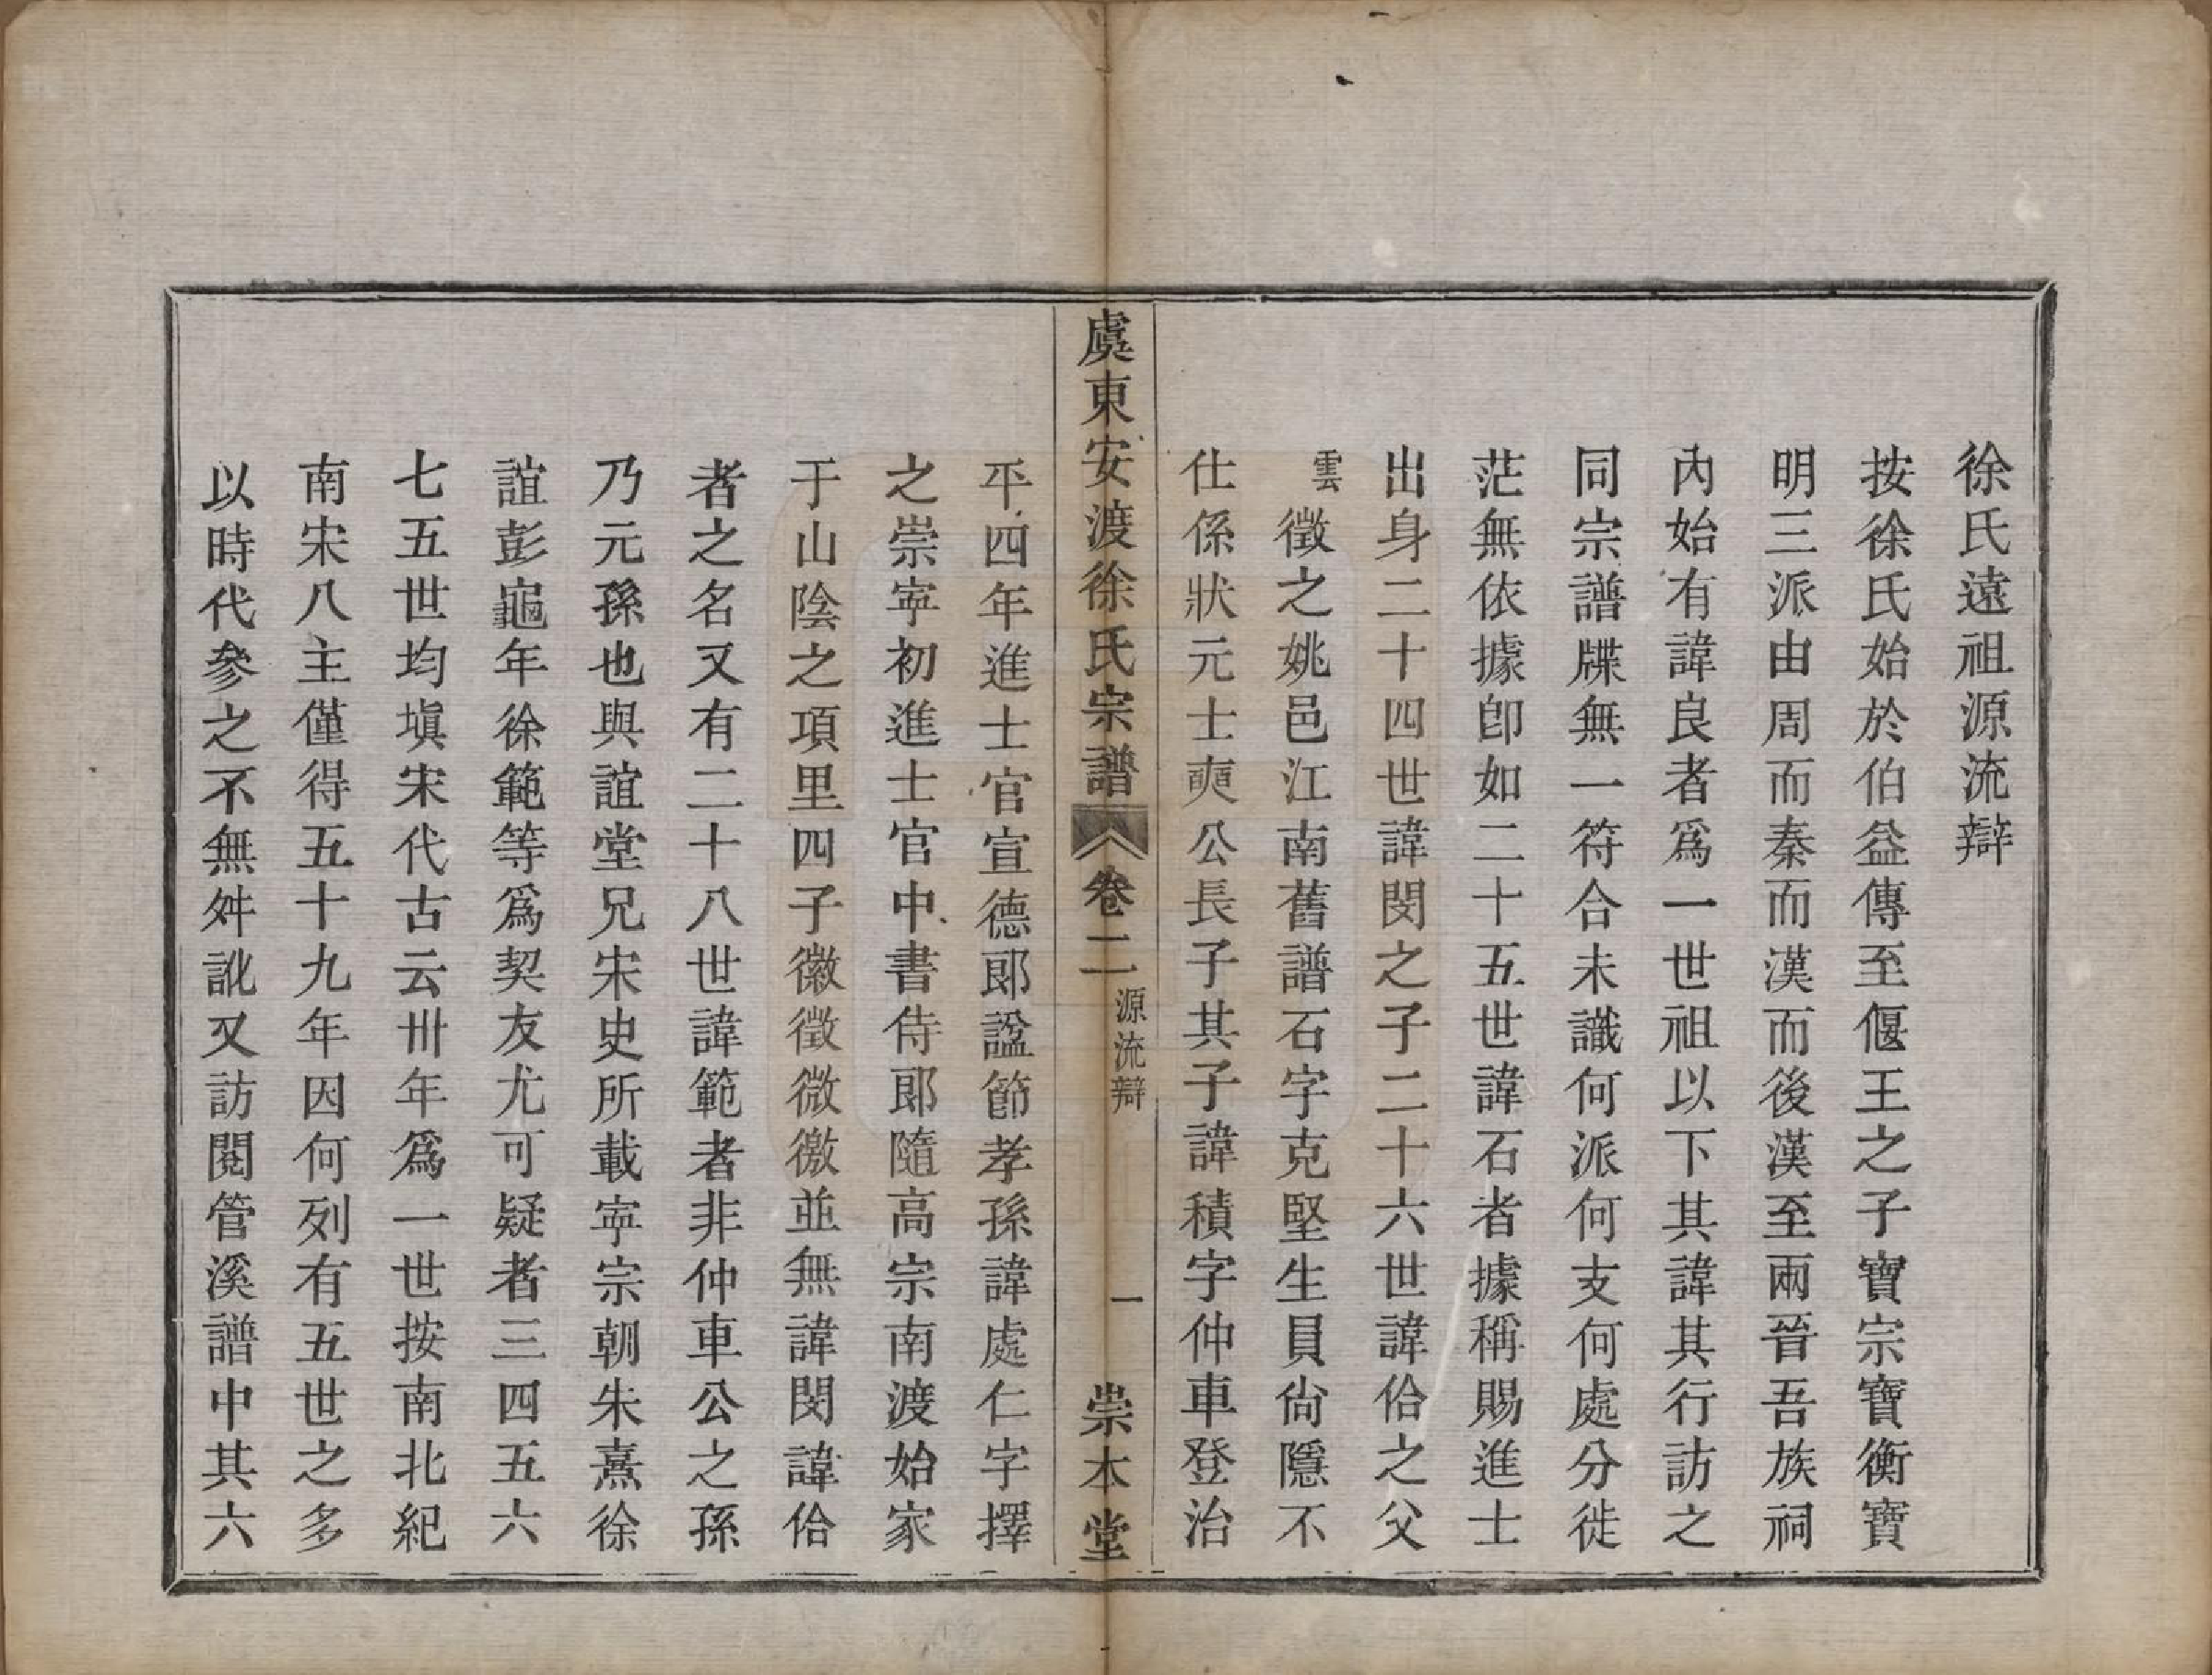 徐氏遠祖源流辯
按徐氏始於伯益傳至偃王之子寶宗寶衡寶
明三派由周而秦而漢而後漢至兩晉吾族祠
內始有諱良者爲一世祖以下其諱其行訪之
同宗譜牒無一符合未識何派何支何處分徙
茫無依據卽如二十五世諱石者據稱賜進士
出身二十四世諱閔之子二十六世諱佮之父
雲徵之姚邑江南舊譜石字克堅生員尙隱不
仕係狀元士奭公長子其子諱積字仲車登治
虞東安渡徐氏宗譜 卷二 源流辯 一 崇本堂
平四年進士官宣德郞諡節孝孫諱處仁字擇
之崇寧初進士官中書侍郞隨高宗南渡始家
于山陰之項里四子徽徵微徼並無諱閔諱佮
者之名又有二十八世諱範者非仲車公之孫
乃元孫也與誼堂兄宋史所載寧宗朝朱熹徐
誼彭龜年徐範等爲契友尤可疑者三四五六
七五世均塡宋代古云卅年爲一世按南北紀
南宋八主僅得五十九年因何列有五世之多
以時代參之不無舛訛又訪閱管溪譜中其六